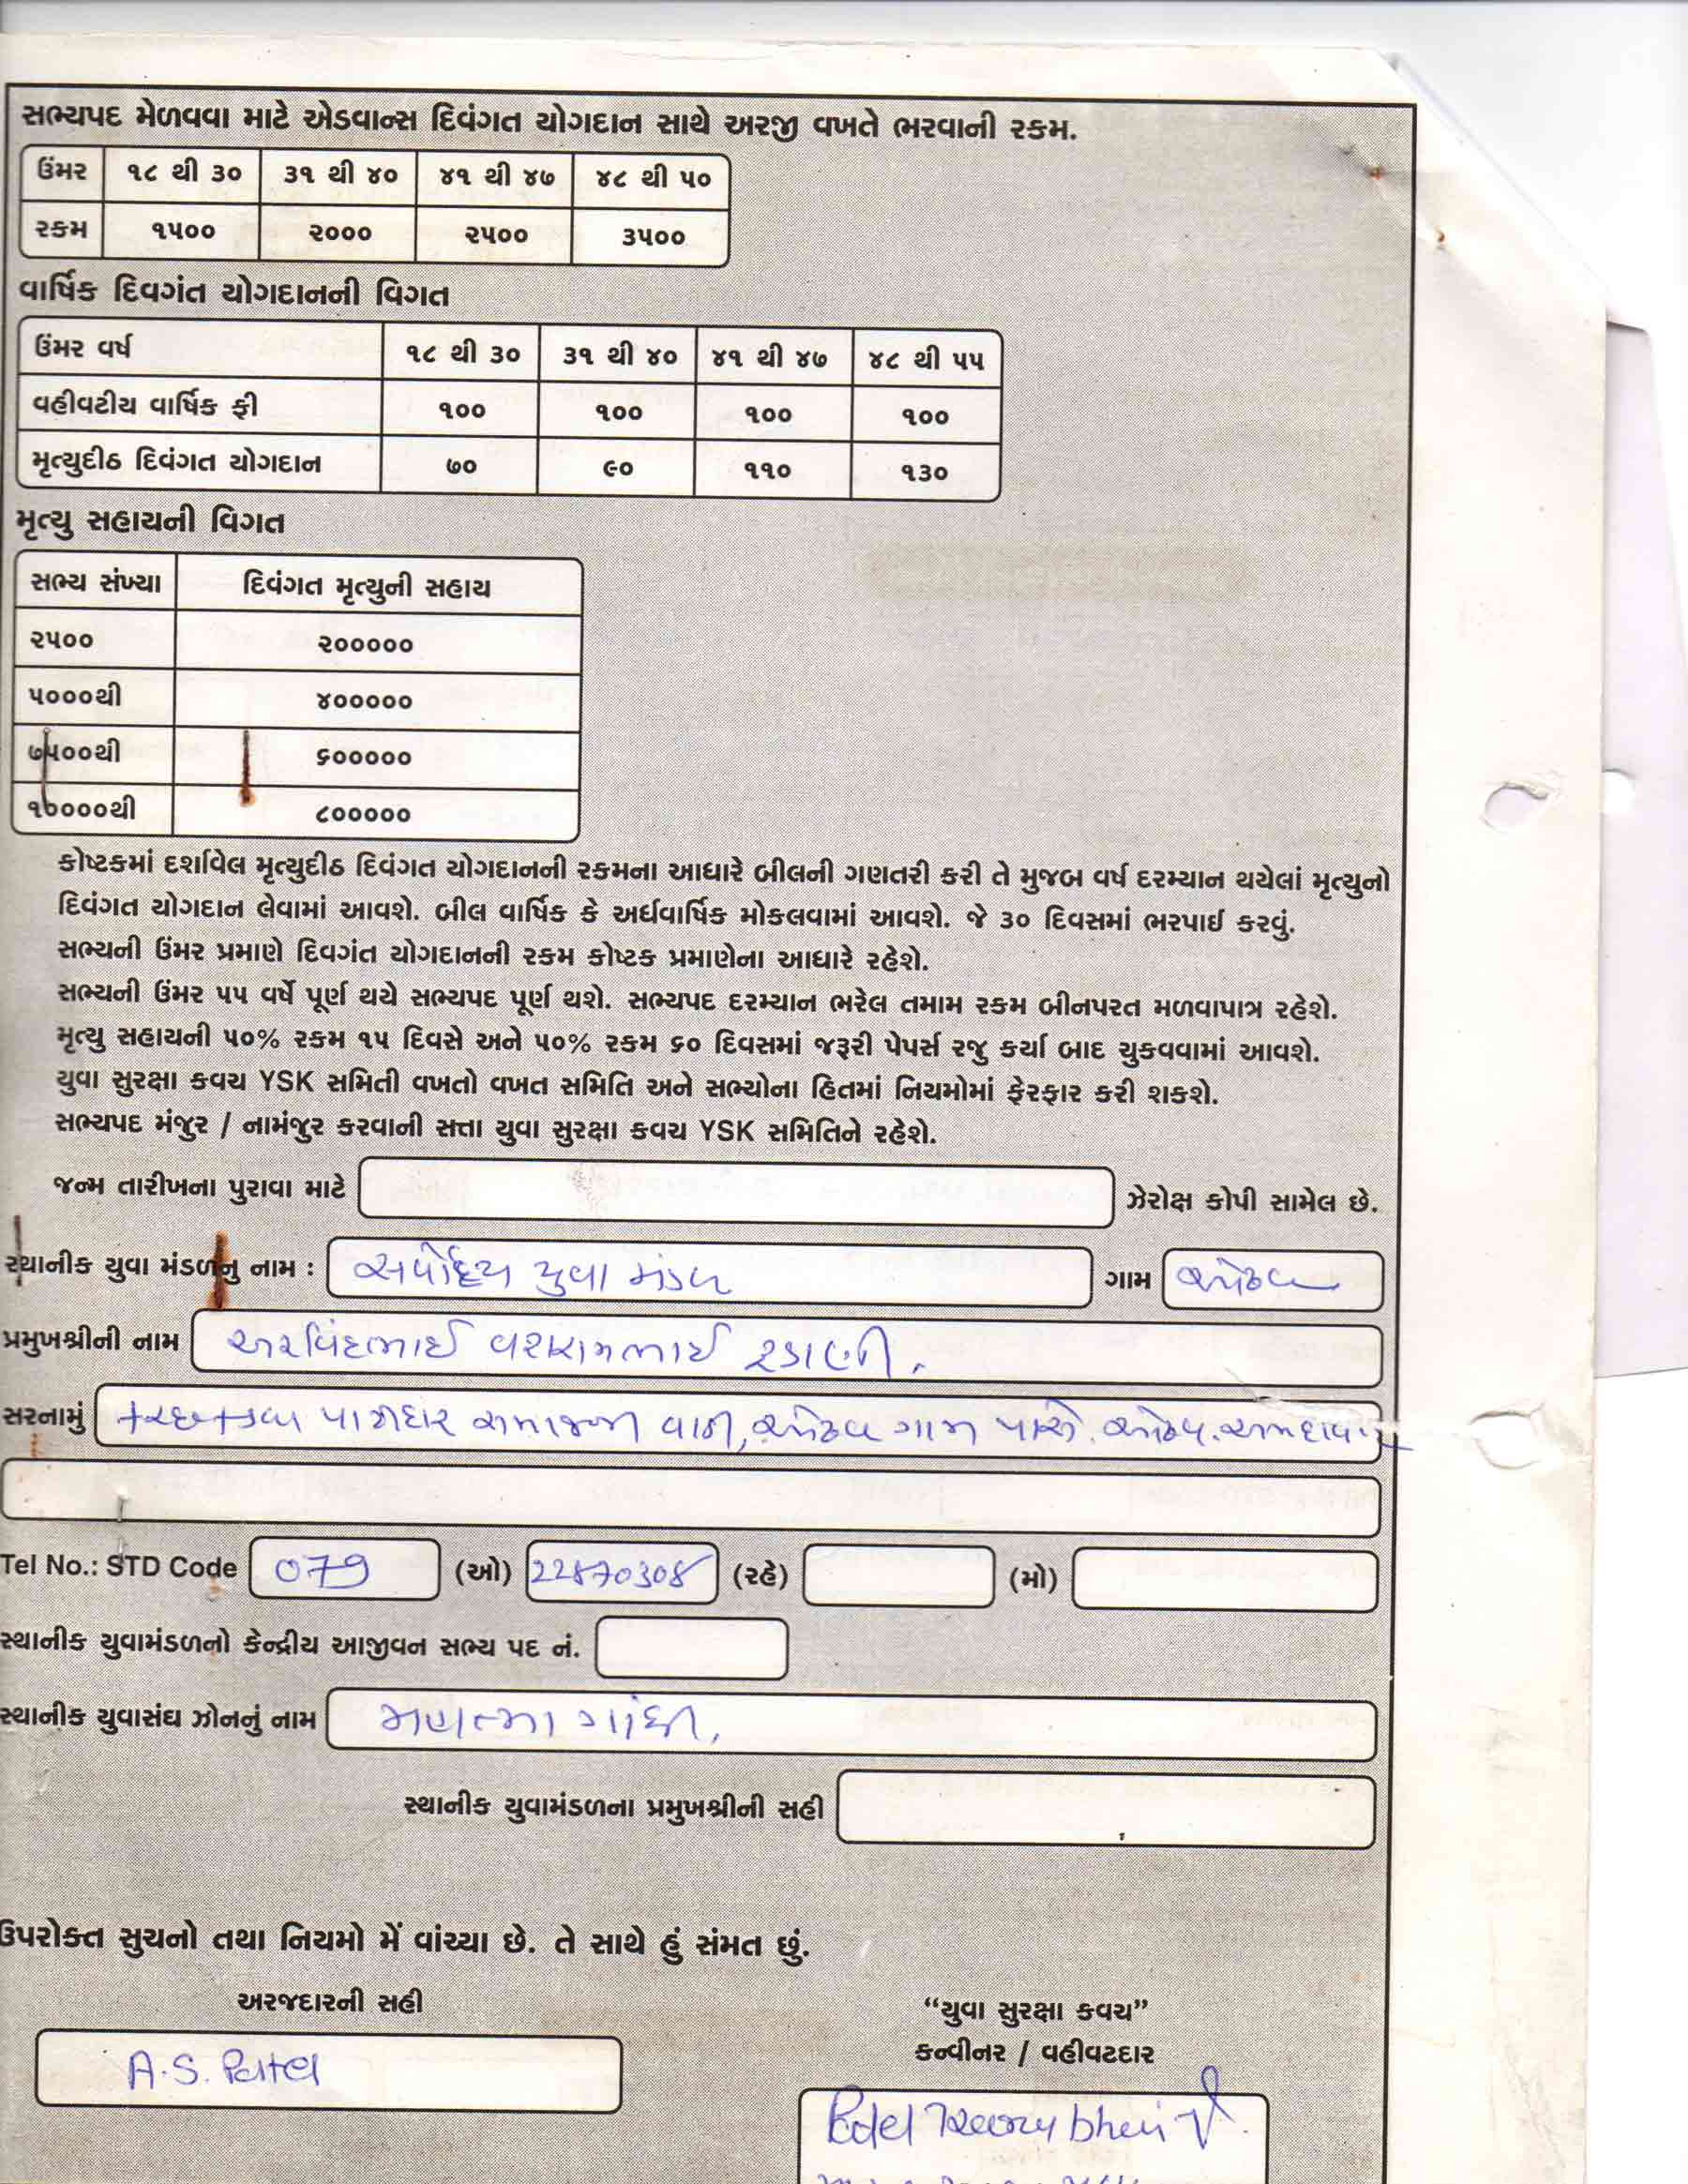 સભ્યપદ મેળવવા માટે એડવાન્સ દિવંગત યોગદાન સાથે અરજી વખતે ભરવાની રકમ.
ઉંમર ૧૮ થી ૩૦ ૩૧ થી ૪૦ ૪૧ થી ૪૭ ૪૮ થી ૫૦
રકમ ૧૫૦૦ ૨૦૦૦ ૨૫૦૦ ૩૫૦૦
વાર્ષિક દિવગંત યોગદાનની વિગત
ઉંમર વર્ષ ૧૮ થી ૩૦ ૩૧ થી ૪૦ ૪૧ થી ૪૭ ૪૮ થી ૫૫
વહીવટીય વાર્ષિક ફી ૧૦૦ ૧૦૦ ૧૦૦ ૧૦૦
મૃત્યુદીઠ દિવંગત યોગદાન ૭૦ ૯૦ ૧૧૦ ૧૩૦
મૃત્યુ સહાયની વિગત
સભ્ય સંખ્યા દિવંગત મૃત્યુની સહાય
૨૫૦૦ ૨૦૦૦૦૦
૫૦૦૦થી ૪૦૦૦૦૦
૭૫૦૦થી ૬૦૦૦૦૦
૧૦૦૦૦થી ૮૦૦૦૦૦
કોષ્ટકમાં દર્શાવેલ મૃત્યુદીઠ દિવંગત યોગદાનની રકમના આધારે બીલની ગણતરી કરી તે મુજબ વર્ષ દરમ્યાન થયેલાં મૃત્યુનો
દિવંગત યોગદાન લેવામાં આવશે. બીલ વાર્ષિક કે અર્ધવાર્ષિક મોકલવામાં આવશે. જે ૩૦ દિવસમાં ભરપાઈ કરવું.
સભ્યની ઉંમર પ્રમાણે દિવગંત યોગદાનની રકમ કોષ્ટક પ્રમાણેના આધારે રહેશે.
સભ્યની ઉંમર ૫૫ વર્ષે પૂર્ણ થયે સભ્યપદ પૂર્ણ થશે. સભ્યપદ દરમ્યાન ભરેલ તમામ રકમ બીનપરત મળવાપાત્ર રહેશે.
મૃત્યુ સહાયની ૫૦% રકમ ૧૫ દિવસે અને ૫૦% રકમ ૬૦ દિવસમાં જરૂરી પેપર્સ રજુ કર્યા બાદ ચુકવવામાં આવશે.
યુવા સુરક્ષા કવચ YSK સમિતી વખતો વખત સમિતિ અને સભ્યોના હિતમાં નિયમોમાં ફેરફાર કરી શકશે.
સભ્યપદ મંજુર / નામંજુર કરવાની સત્તા યુવા સુરક્ષા કવચ YSK સમિતિને રહેશે.
જન્મ તારીખના પુરાવા માટે ઝેરોક્ષ કોપી સામેલ છે.
સ્થાનીક યુવા મંડળનુ નામ : સર્વોદય યુવા મંડળ ગામ
પ્રમુખશ્રીની નામ અરવિંદભાઈ વશરામભાઈ રડાણી.
સરનામું કચ્છ કડવા પાટીદાર સમાજની વાડી, ગામ પાસે.
Tel No.: STD Code 079 (ઓ) 22870308 (રહે) (મો)
સ્થાનીક યુવામંડળનો કેન્દ્રીય આજીવન સભ્ય પદ નં.
સ્થાનીક યુવાસંઘ ઝોનનું નામ મહાત્મા ગાંધી.
સ્થાનીક યુવામંડળના પ્રમુખશ્રીની સહી
ઉપરોક્ત સુચનો તથા નિયમો મેં વાંચ્યા છે. તે સાથે હું સંમત છું.
અરજદારની સહી
“યુવા સુરક્ષા કવચ”
કન્વીનર / વહીવટદાર
A.S. Patel